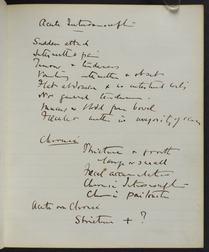 Acute Intussusception
Sudden attack
Intermittent pain
Tumour & tenderness
Vomiting
Flat abdomen & no distended coils
No general tenderness
Mucus & blood per bowel
majority of cases
Chronic
Stricture or growth
large or small
Faecal accumulation
Chronic Intussusception
Chronic peritonitis
Acute on Chronic
Stricture + ?